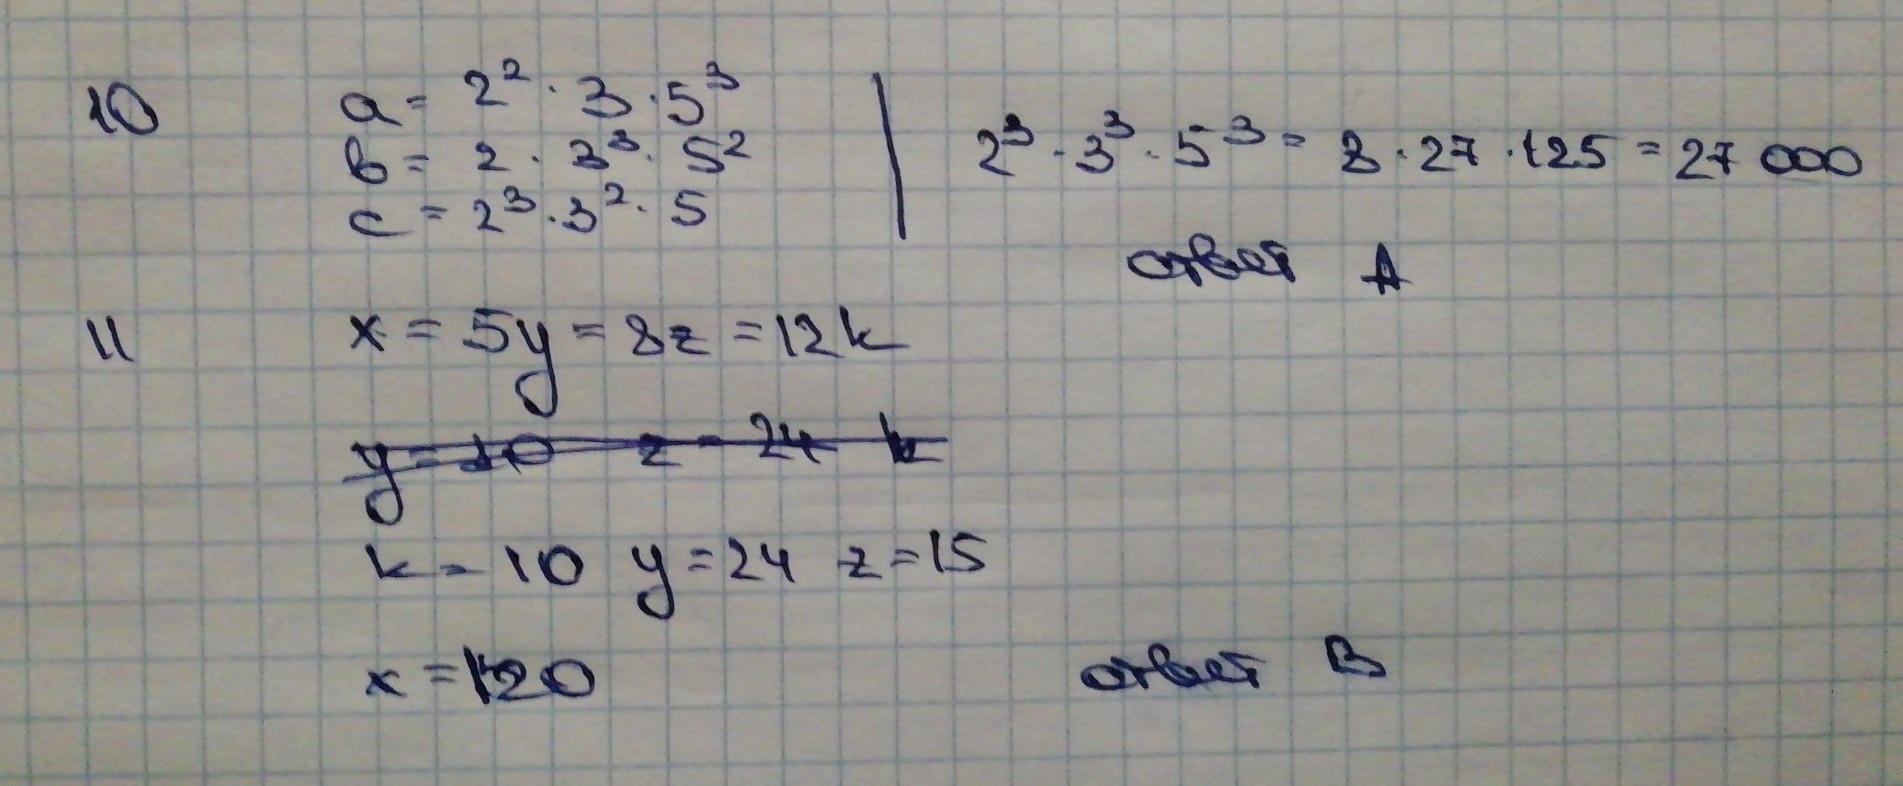 10 a = 2² · 3 · 5³
b = 2 · 3³ · 5²
c = 2³ · 3² · 5
2³ · 3³ · 5³ = 8 · 27 · 125 = 27 000
ответ А
11 x = 5y = 8z = 12k
y = 10 z = 24 k
k = 10 y = 24 z = 15
x = 120
ответ В